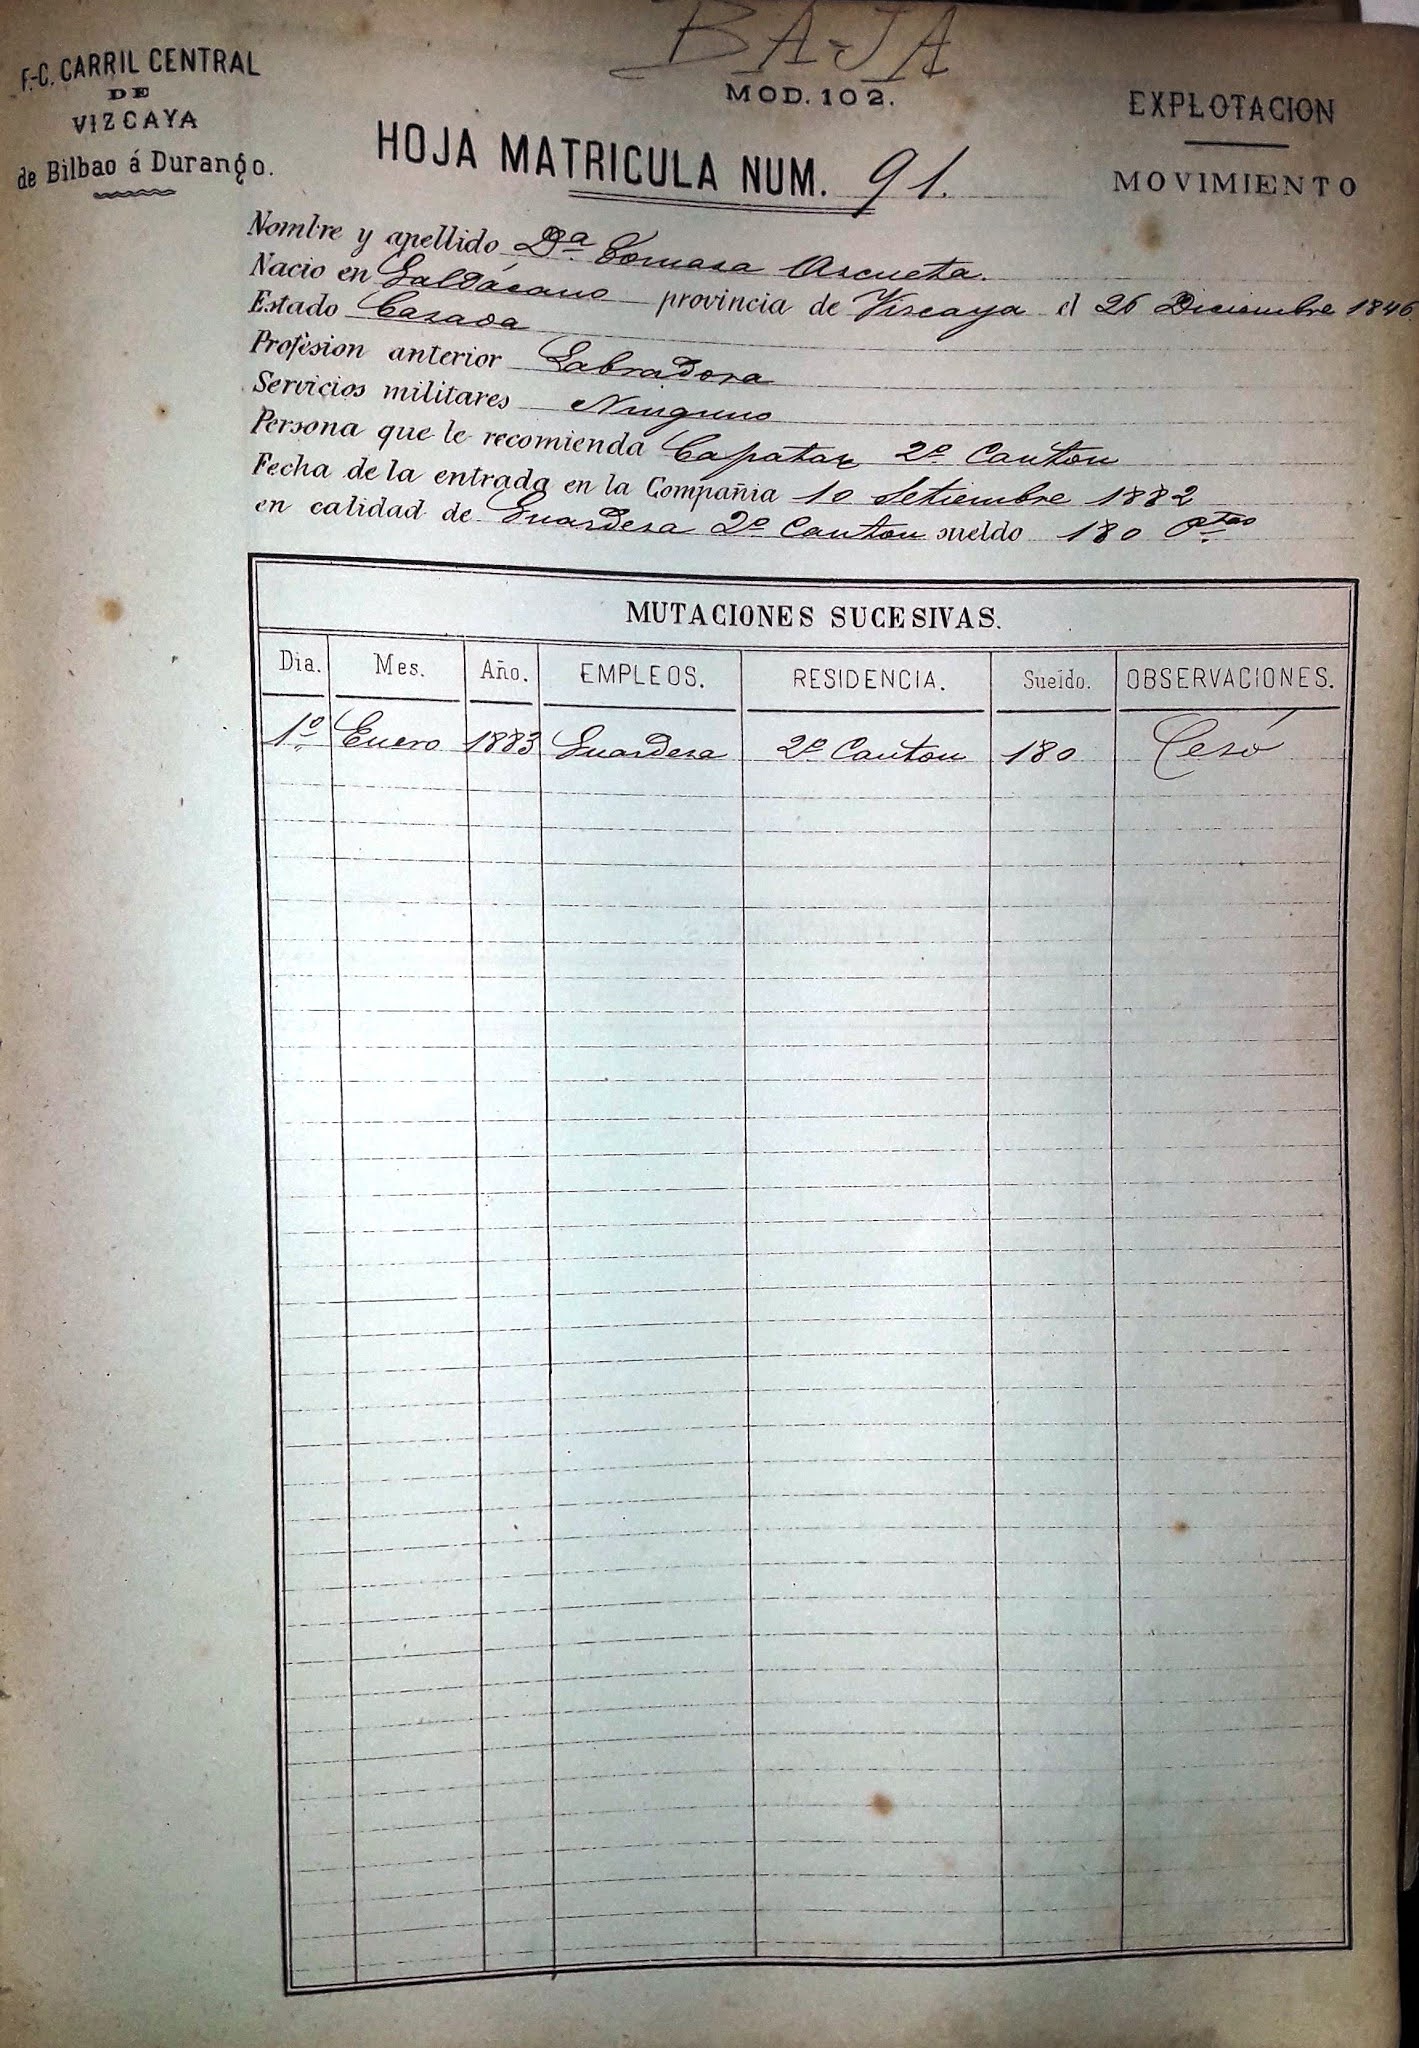 BAJA
F.-C. CARRIL CENTRAL
DE
VIZCAYA
de Bilbao á Durango.
MOD. 102.
EXPLOTACION
MOVIMIENTO
HOJA MATRICULA NUM. 91.
Nombre y apellido Dª Tomasa Ascueta.
Nacio en Galdácano provincia de Viscaya el 26 Diciembre 1846
Estado Casada
Profesion anterior Labradora
Servicios militares Ninguno
Persona que le recomienda Capataz 2º Canton
Fecha de la entrada en la Compañia 10 Setiembre 1882
en calidad de Guardesa 2º Canton sueldo 180 Ptas
MUTACIONES SUCESIVAS.
Dia. Mes. Año. EMPLEOS. RESIDENCIA. Sueldo. OBSERVACIONES.
1º Enero 1883 Guardesa 2º Canton 180 Cesó